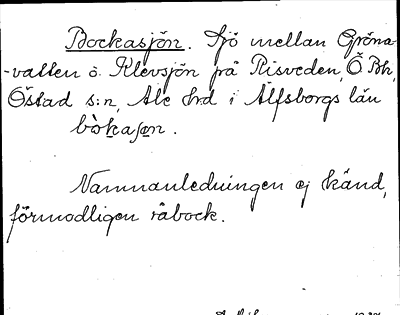 Bockasjön. Sjö mellan Gröna-
-vatten o. Klevsjön på Risveden, Ö Bh,
Östad s:n, Ale hrd i Älfsborgs län
bò̀kaʃøn.
Namnanledningen ej känd,
förmodligen råbock.